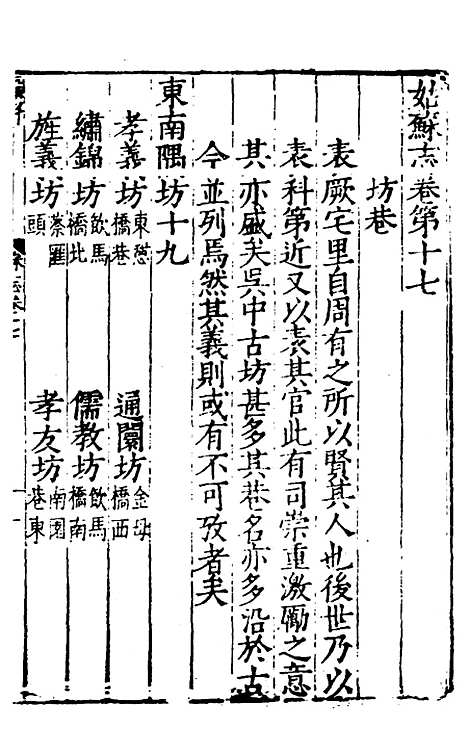 姑蘇志卷第十七
坊巷
表厥宅里自周有之所以賢其人也後世乃以
表科第近又以表其官此有司崇重激勵之意
其亦盛矣吳中古坊甚多其巷名亦多沿於古
今並列焉然其義則或有不可攷者矣
東南隅坊十九
孝義坊 東憩橋巷 通闤坊 金母橋西
繡錦坊 飲馬橋北 儒教坊 飲馬橋南
旌義坊 蔡匯頭 孝友坊 南園巷東